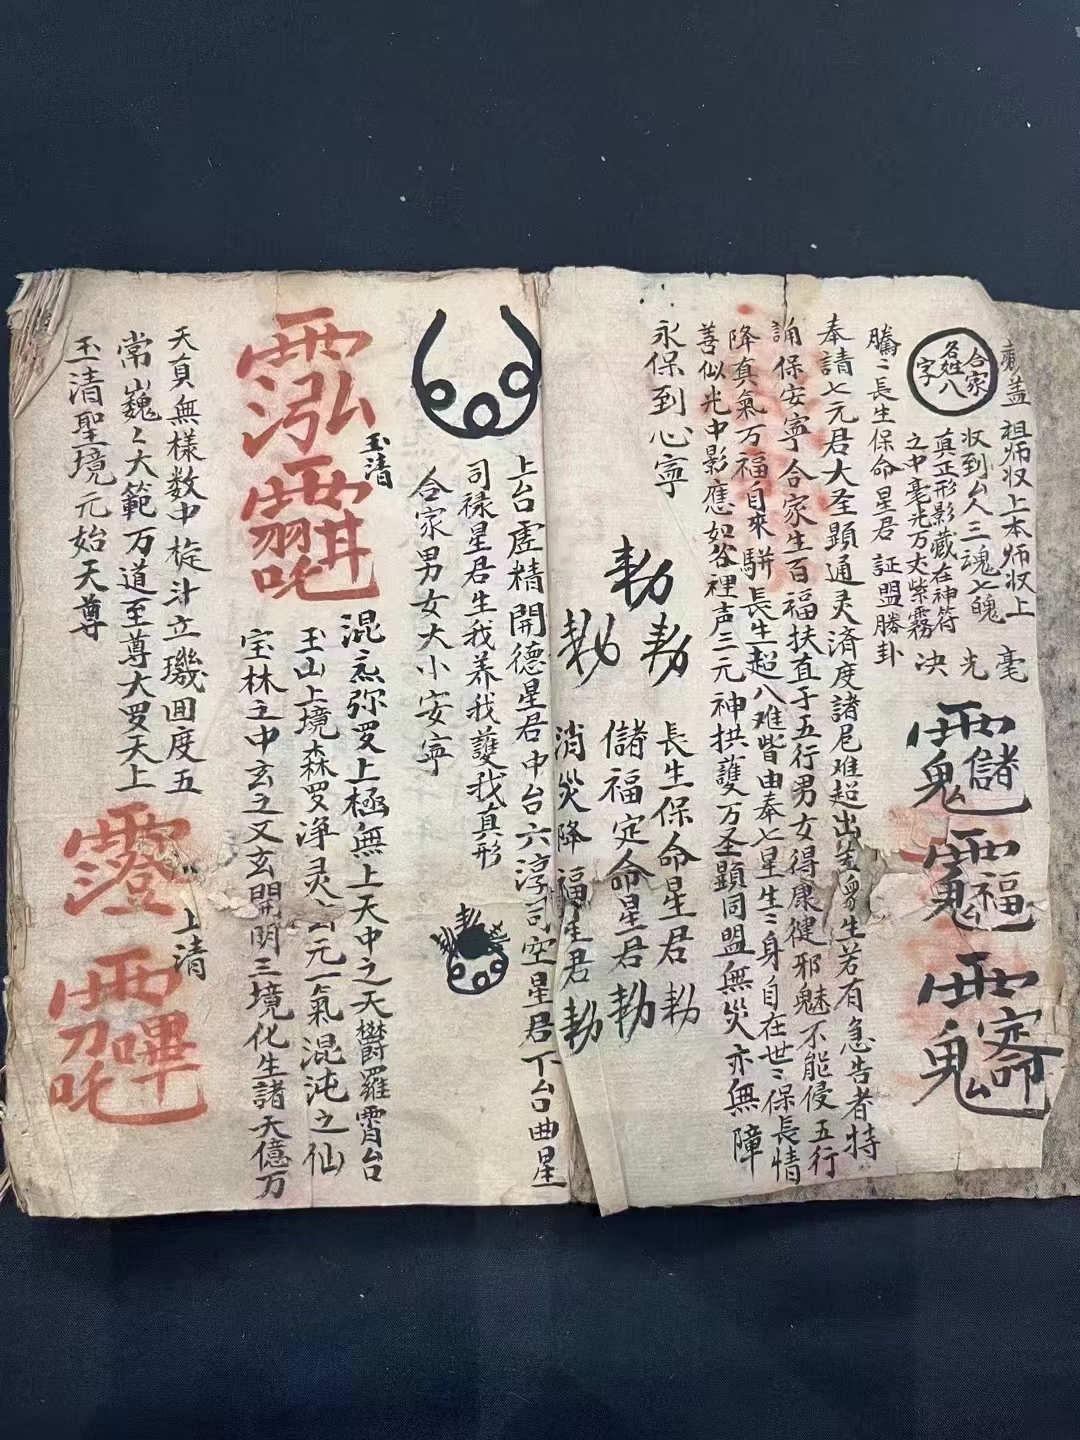 藏盖
合家名姓八字
祖师収上本师収上
収到众人三魂七魄
真正形影藏在神符
之中毫光万丈紫霧
毫光决
騰〻長生保命星君 証盟勝卦
奉請七元君大圣顕通灵済度諸厄难超出苦衆生若有急告者特
誦保安寧合家生百福扶直于五行男女得康健邪魅不能侵五行
降真氣万福自來駢長生超八难皆由奉七星生〻身自在世〻保長情
善似光中影應如谷裡声三元神拱護万圣顕同盟無災亦無障
永保到心寧
勅
勅
勅
長生保命星君勅
儲福定命星君勅
消災降福星君勅
上台虚精開德星君中台六淳司空星君下台曲星
司禄星君生我养我護我真形
勅
合家男女大小安寧
玉清
混㤙弥罗上極無上天中之天欝羅霄台
玉山上境森罗净灵元一氣混沌之仙
宝林之中玄之又玄開明三境化生諸天億万
天真無様数中㨓斗立璣囬度五
常巍〻大範万道至尊大罗天上
玉清聖境元始天尊
上清